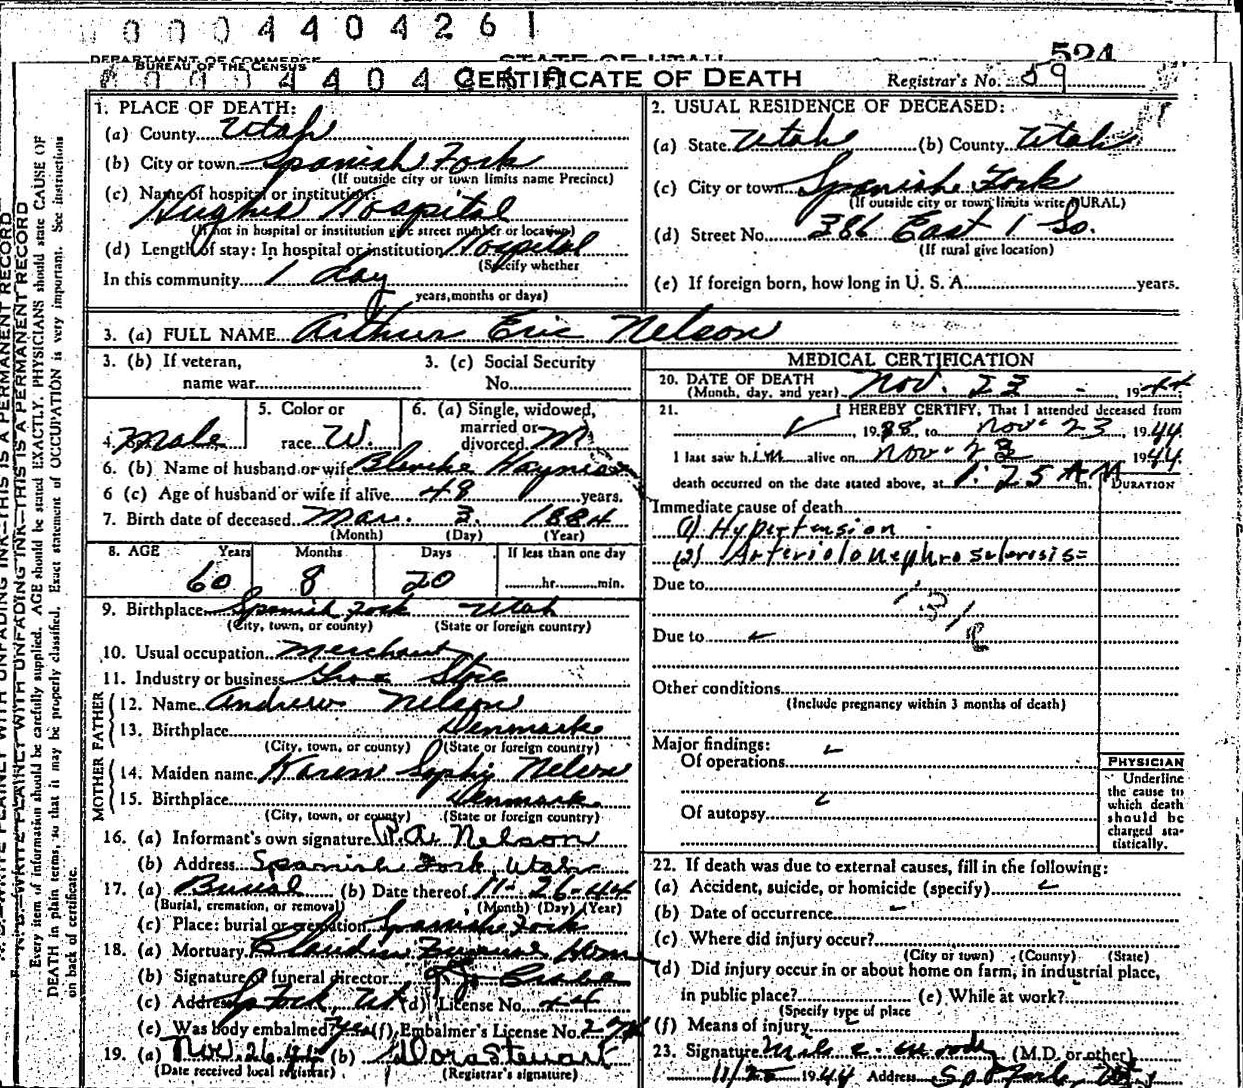 0004404261
DEPARTMENT OF COMMERCE
BUREAU OF THE CENSUS
STATE OF UTAH
524
CERTIFICATE OF DEATH
Registrar's No. 59
1. PLACE OF DEATH:
(a) County Utah
(b) City or town Spanish Fork
(If outside city or town limits name Precinct)
(c) Name of hospital or institution:
Hughes Hospital
(If not in hospital or institution give street number or location)
(d) Length of stay: In hospital or institution Hospital
(Specify whether
In this community 1 day
years, months or days)
2. USUAL RESIDENCE OF DECEASED:
(a) State Utah (b) County Utah
(c) City or town Spanish Fork
(If outside city or town limits write RURAL)
(d) Street No. 386 East 1 So.
(If rural give location)
(e) If foreign born, how long in U. S. A. years.
3. (a) FULL NAME Arthur Eric Nelson
3. (b) If veteran,
name war
3. (c) Social Security
No.
4. Sex Male
5. Color or
race W.
6. (a) Single, widowed,
married or
divorced M
6. (b) Name of husband or wife Blanche
6 (c) Age of husband or wife if alive 48 years.
7. Birth date of deceased Mar. 3. 1884
(Month) (Day) (Year)
8. AGE Years Months Days If less than one day
60 8 20 hr. min.
9. Birthplace Spanish Fork Utah
(City, town, or county) (State or foreign country)
10. Usual occupation Merchant
11. Industry or business Store
FATHER
12. Name Andrew Nelson
13. Birthplace Denmark
(City, town, or county) (State or foreign country)
MOTHER
14. Maiden name Karen Sophy Nelson
15. Birthplace Denmark
(City, town, or county) (State or foreign country)
16. (a) Informant's own signature P.A. Nelson
(b) Address Spanish Fork Utah
17. (a) Burial (b) Date thereof 11-26-44
(Burial, cremation, or removal) (Month) (Day) (Year)
(c) Place: burial or cremation Spanish Fork
18. (a) Mortuary Claudin Funeral Home
(b) Signature of funeral director
(c) Address Sp Fork, Ut (d) License No. 44
(e) Was body embalmed? Yes (f) Embalmer's License No.
19. (a) Nov. 26. 44 (b) Dora Stewart
(Date received local registrar) (Registrar's signature)
MEDICAL CERTIFICATION
20. DATE OF DEATH Nov. 23 1944
(Month, day, and year)
21. I HEREBY CERTIFY, That I attended deceased from
, 1938, to Nov. 23 1944
I last saw him alive on Nov. 23 1944
death occurred on the date stated above, at 1:25 A m. DURATION
Immediate cause of death
(1) Hypertension
(2) Arteriolonephrosclerosis
Due to
Due to
Other conditions
(Include pregnancy within 3 months of death)
Major findings:
Of operations
Of autopsy
PHYSICIAN
Underline
the cause to
which death
should be
charged sta-
tistically.
22. If death was due to external causes, fill in the following:
(a) Accident, suicide, or homicide (specify)
(b) Date of occurrence
(c) Where did injury occur?
(City or town) (County) (State)
(d) Did injury occur in or about home on farm, in industrial place,
in public place? (e) While at work?
(Specify type of place
(f) Means of injury
23. Signature Milo C. Moody (M.D. or other)
11/25 1944 Address Sp Fork
THIS IS A PERMANENT RECORD
Every item of information should be carefully supplied. AGE should be stated EXACTLY. PHYSICIANS should state CAUSE OF
DEATH in plain terms, so that it may be properly classified. Exact statement of OCCUPATION is very important. See instructions
on back of certificate.